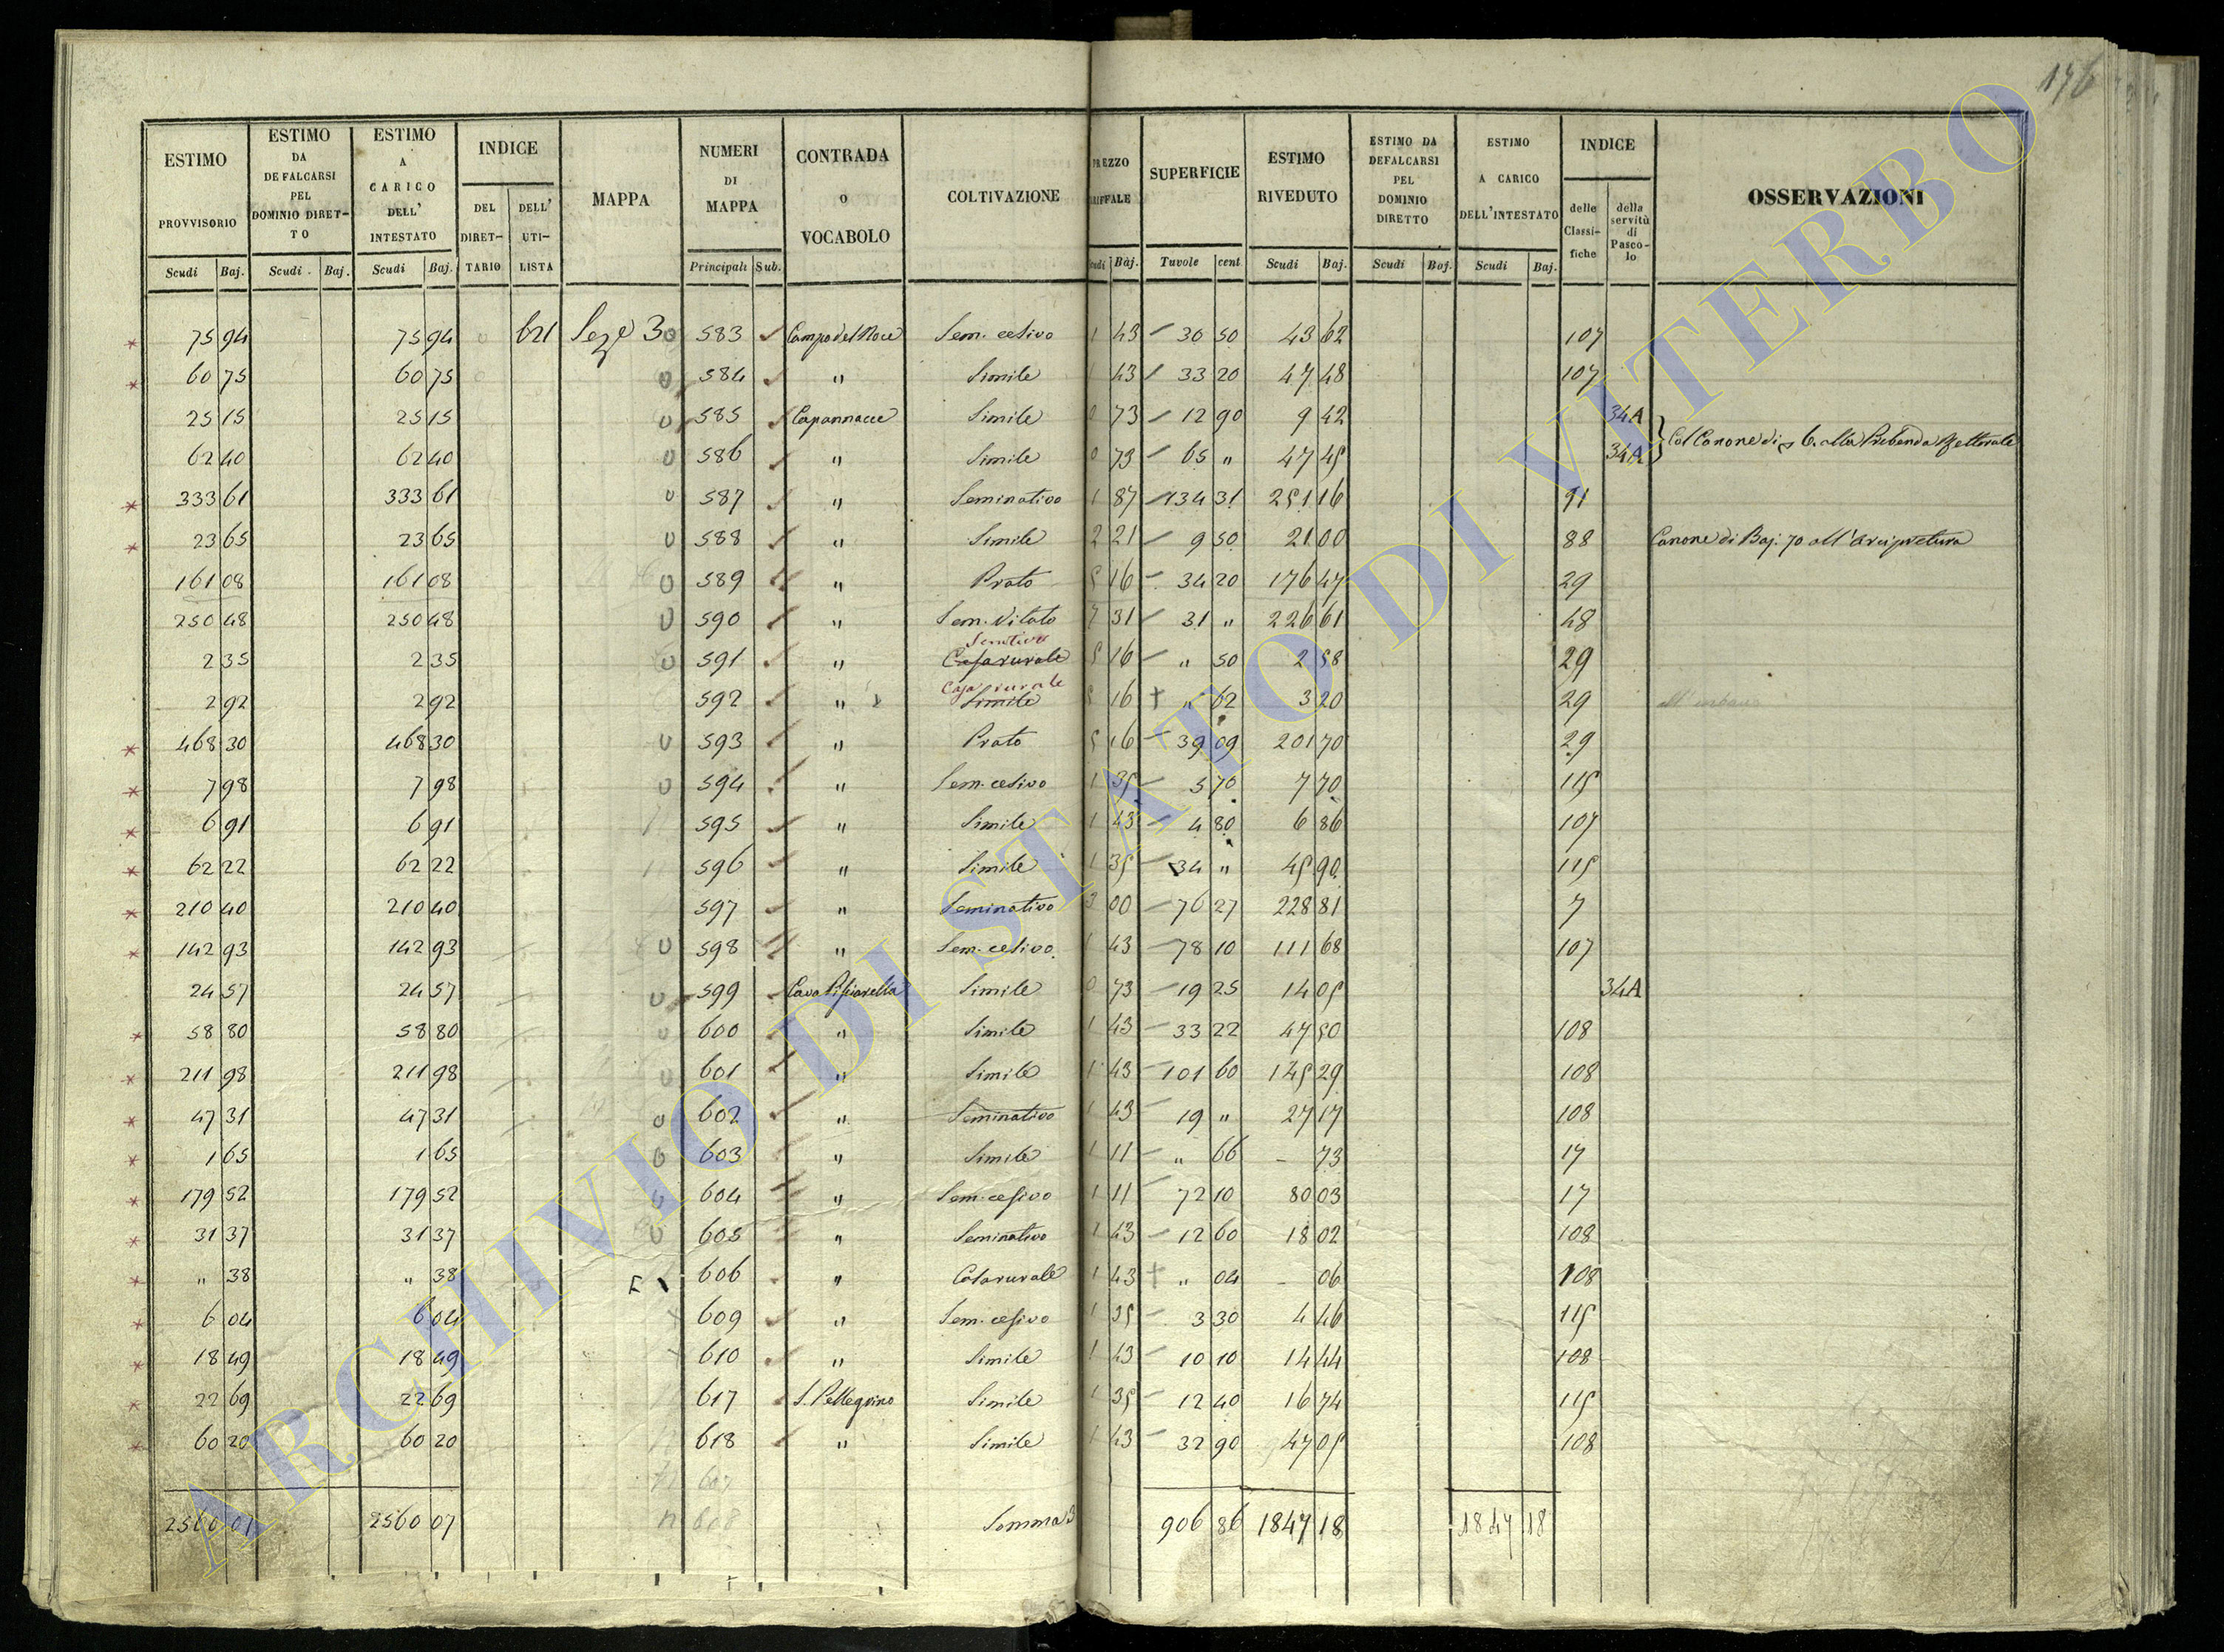 176
ESTIMO PROVVISORIO Scudi Baj.
ESTIMO DA DEFALCARSI PEL DOMINIO DIRETTO Scudi Baj.
ESTIMO A CARICO DELL' INTESTATO Scudi Baj.
INDICE DEL DIRETTARIO DELL' UTILISTA
MAPPA
NUMERI DI MAPPA Principali Sub.
CONTRADA O VOCABOLO
COLTIVAZIONE
PREZZO Scudi Baj.
SUPERFICIE Tavole cent
ESTIMO RIVEDUTO Scudi Baj.
ESTIMO DA DEFALCARSI PEL DOMINIO DIRETTO Scudi Baj.
ESTIMO A CARICO DELL'INTESTATO Scudi Baj.
INDICE delle Classifiche della servitù di Pascolo
OSSERVAZIONI
75 94 75 94 621 Sez.e 3 583 Campo del Noce Sem. cesivo 1 43 30 50 43 62 107
60 75 60 75 584 " Simile 1 43 33 20 47 48 107
25 15 25 15 585 Capannacce Simile 0 73 12 90 9 42 34A
62 40 62 40 586 " Simile 0 73 65 " 47 45 34A Col Canone di 6. alla Prebenda Rettorale
333 61 333 61 587 " Seminativo 1 87 134 31 251 16 91
23 65 23 65 588 " Simile 2 21 9 50 21 00 88 Canone di Baj. 70 all'Arcipretura
161 08 161 08 589 " Prato 5 16 34 20 176 47 29
250 48 250 48 590 " Sem. Vitato 7 31 31 " 226 61 48
2 35 2 35 591 " Casa rurale 5 16 " 50 2 58 29
2 92 2 92 592 " Casa rurale Simile 5 16 " 62 3 20 29
468 30 468 30 593 " Prato 5 16 39 09 201 70 29
7 98 7 98 594 " Sem. cesivo 1 35 5 70 7 70 115
6 91 6 91 595 " Simile 1 43 4 80 6 86 107
62 22 62 22 596 " Simile 1 35 34 " 45 90 115
210 40 210 40 597 " Seminativo 3 00 76 27 228 81 7
142 93 142 93 598 " Sem. cesivo 1 43 78 10 111 68 107
24 57 24 57 599 Cava Pisciarella Simile 0 73 19 25 14 05 34A
58 80 58 80 600 " Simile 1 43 33 22 47 50 108
211 98 211 98 601 " Simile 1 43 101 60 145 29 108
47 31 47 31 602 " Seminativo 1 43 19 " 27 17 108
1 65 1 65 603 " Simile 1 11 " 66 - 73 17
179 52 179 52 604 " Sem. cesivo 1 11 72 10 80 03 17
31 37 31 37 605 " Seminativo 1 43 12 60 18 02 108
" 38 " 38 606 " Casa rurale 1 43 " 04 - 06 108
6 04 6 04 609 " Sem. cesivo 1 35 3 30 4 46 115
18 49 18 49 610 " Simile 1 43 10 10 14 44 108
22 69 22 69 617 S. Pellegrino Simile 1 35 12 40 16 74 115
60 20 60 20 618 " Simile 1 43 32 90 47 05 108
607
2560 07 2560 07 608 Somma 906 86 1847 18 1847 18
ARCHIVIO DI STATO DI VITERBO